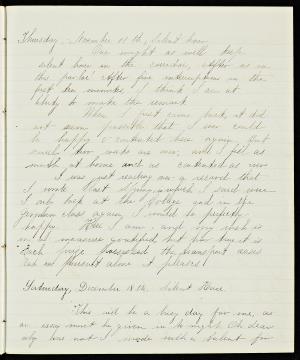 Thursday, November 18th, Silent hour
One might as well keep
silent hour in the corridor, after as in
this parlor! After five interruptions in the
first ten minutes, I think I am at
liberty to make this remark.
When I first came back, it did
not seem possible that I ever could
be happy & contented here again. But
now, I feel as
much at home and as contented as ever
I was just reading over a record that
I wrote last spring in which I said once
I only look at the and in the
again, I would be perfectly
happy. Here I am and my wish is
in a measure gratified but how true it is
Each possessed the transport
and at present alone it pleases!
Saturday, December 18th. Silent Hour.
This will be a busy day for me, as
an essay must be given in to night. Oh dear
why was not I made with a talent for